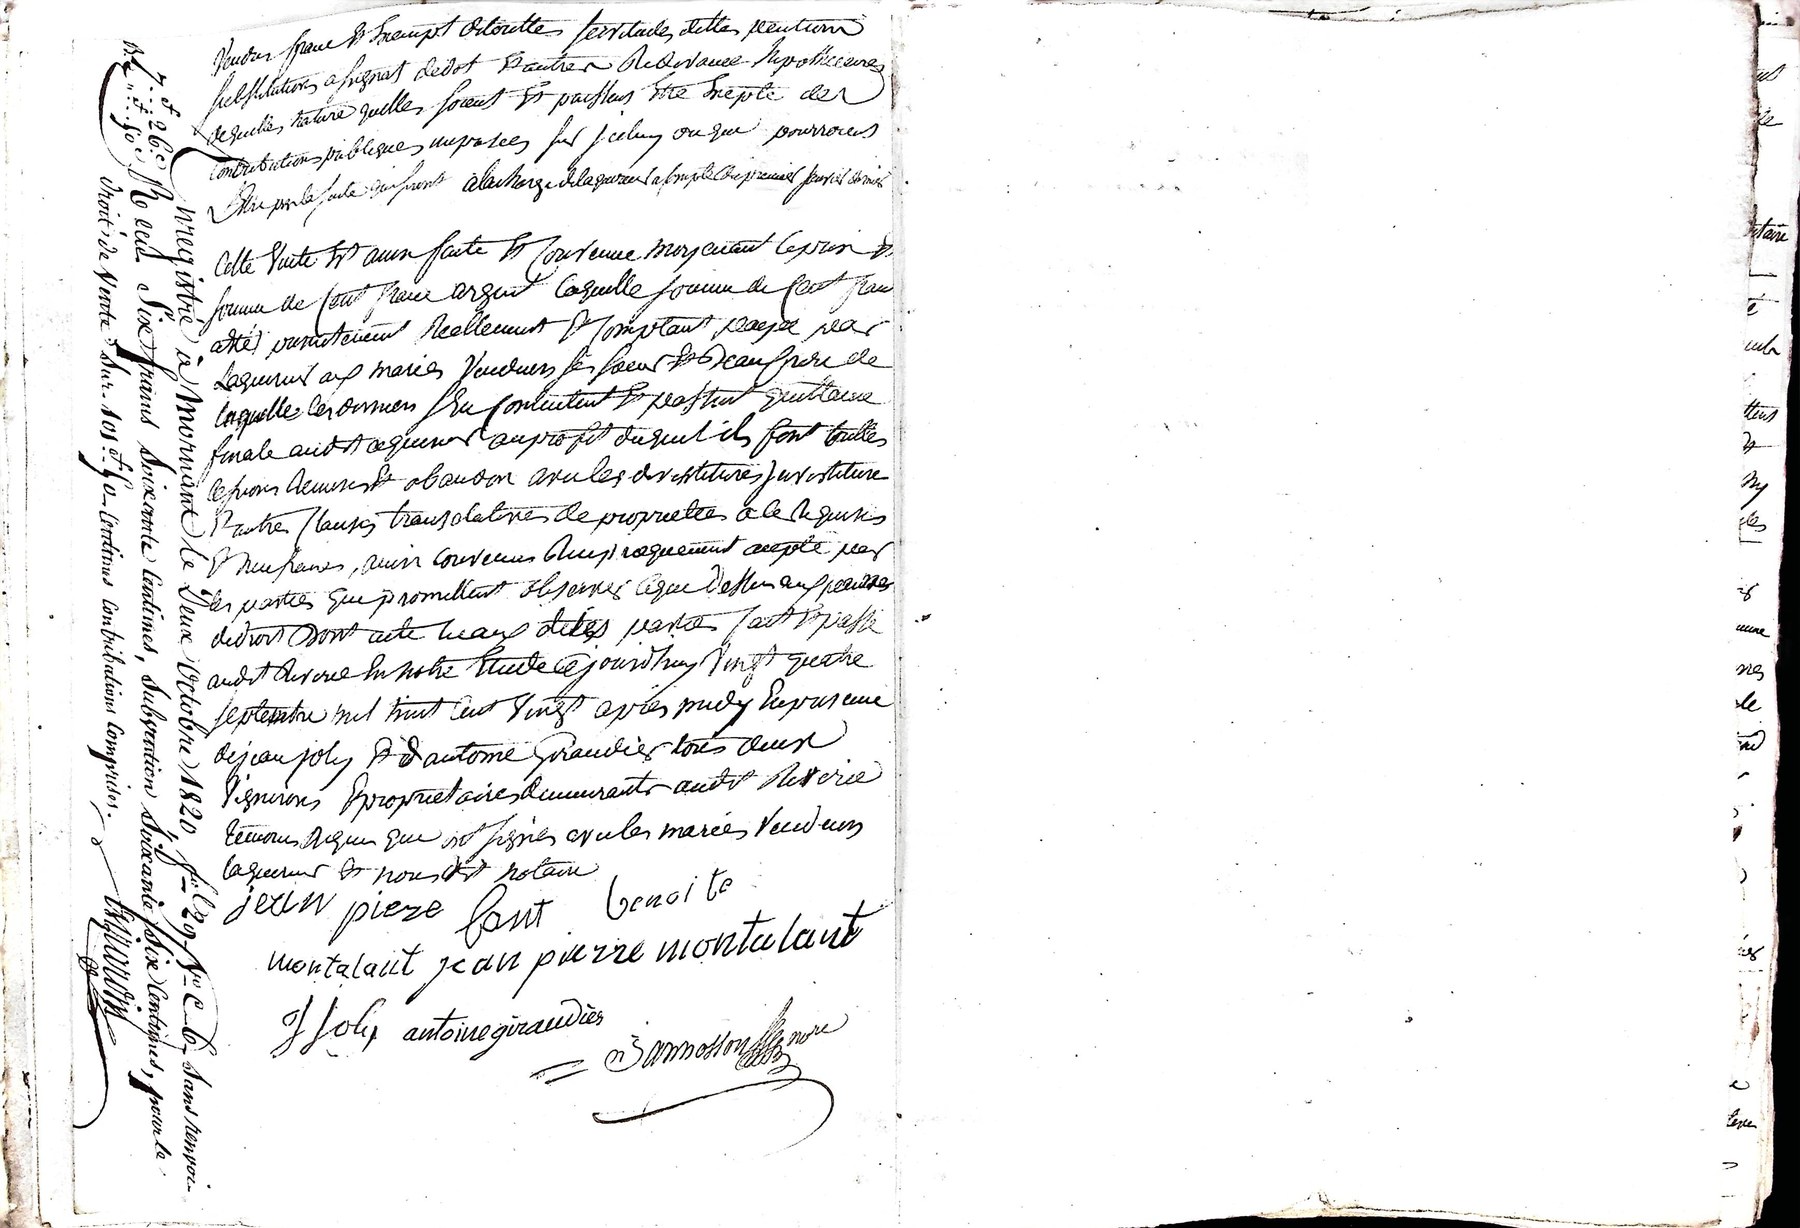 Vendu franc et Exempt de touttes servitudes dettes pentions
substitutions assignat de dot et autres Redevance hypothecaires
de quelles nature quelles soient et puissent etre Excepté des
contributions publiques imposées sur iceluy ou que pourroient
Letre par la suite qui seront a la charge de laquereur a compte du premier janvier dernier
Cette Vente Est ainsi faitte et Convenue moyenant le prix et
somme de Cent franc argent laquelle somme de Cent franc
a été presentement Reellement et Comptant payée par
Laquereur aux mariés Vendeurs ses soeur et Beaufrere de
laquelle ces derniers sen Contentent et passent quittance
finale audit aquereur au profit duquel ils font touttes
cessions demission et abandon avec les devestitures investiture
et autres Clauses translatives de proprietées a ce Requises
et necessaires, ainsi convenus Reciproquement accepté par
les parties que promettent observer ce que dessus aux peines
de droit dont acte Fait et passé
audit Riverie En notre Etude cejourdhuy Vingt quatre
septembre mil huit Cent Vingt après midy En presence
de jean joly et d'antoine Giraudier tous deux
Vignerons et proprietaires demeurants audit Riverie
temoins Requis que ont signés avec les mariés Vendeurs
laquereur et nous dit notaire
jean piere font benoite
montalant jean pierre montalant
J Joly antoine giraudier
Jannosson nore
Enregistré à Mornant le Deux Octobre 1820, fo 29 Vo C 6, sans renvoi.
Recu Six francs soixante centimes, subvention soixante six Centimes, pour le
droit de Vente, sur 101 f 50 centimes contributions comprises.